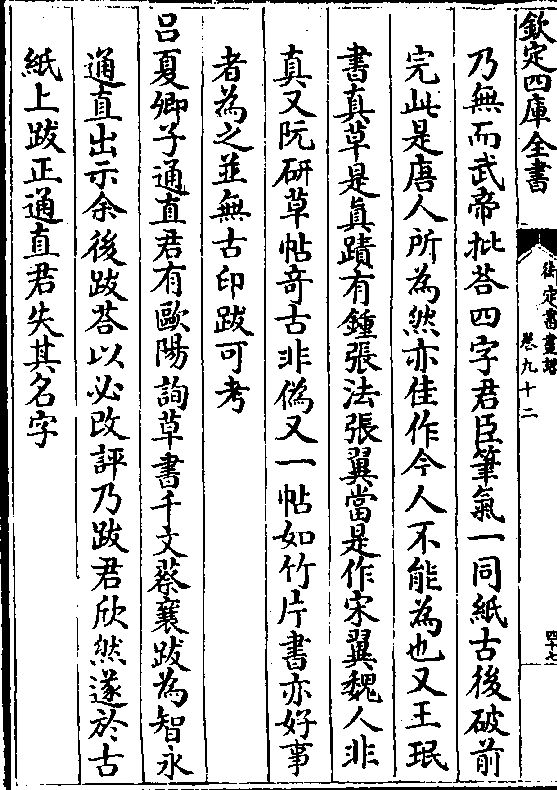 欽定四庫全書
御定書畫譜
卷九十二
四十七
乃無而武帝批荅四字君臣筆氣一同紙古後破前
完此是唐人所為然亦佳作今人不能為也又王珉
書真草是真蹟有鍾張法張翼當是作宋翼魏人非
真又阮研草帖竒古非偽又一帖如竹片書亦好事
者為之並無古印跋可考
吕夏卿子通直君有歐陽詢草書千文蔡襄跋為智永
通直出示余後跋荅以必改評乃跋君欣然遂於古
紙上跋正通直君失其名字